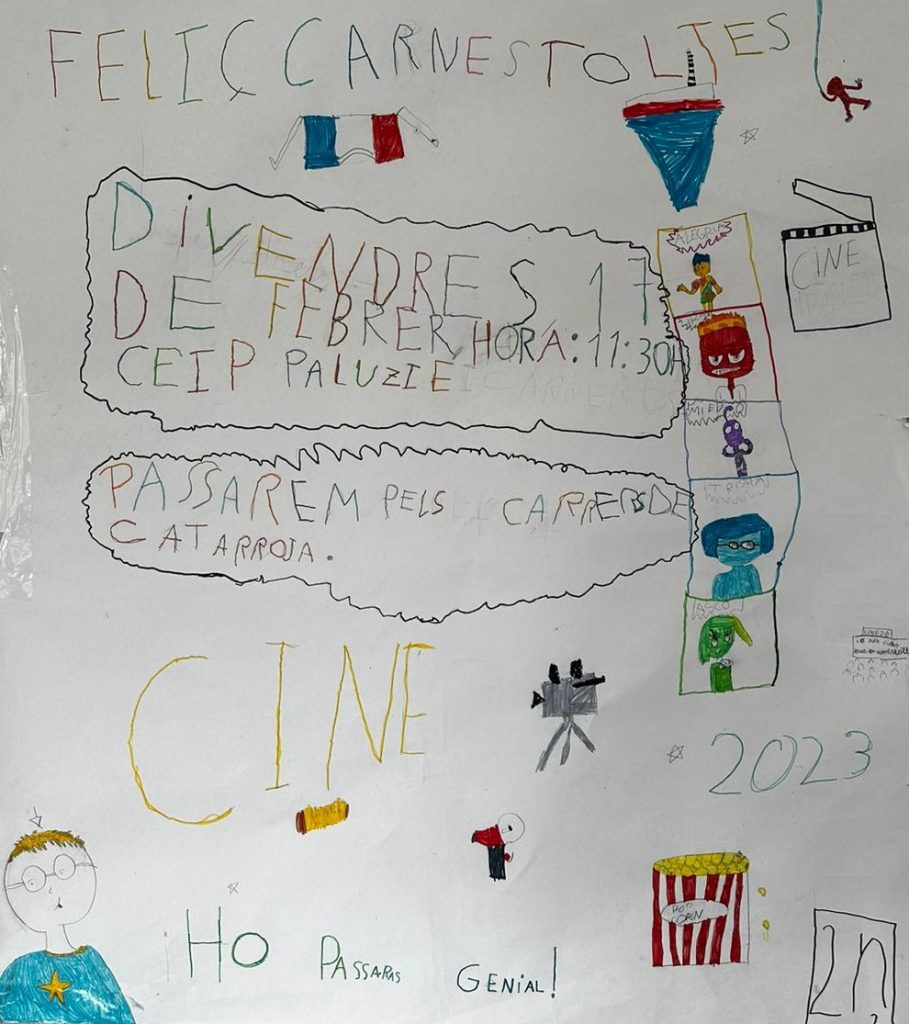 FELIÇ CARNESTOLTES
DIVENDRES 17
DE FEBRER HORA: 11:30H
CEIP PALUZIE
ALEGRIA
CINE
MIEDO
PASSAREM PELS CARRERS DE
CATARROJA.
ASCO
CINE
2023
POP
CORN
HO PASSARAS GENIAL!